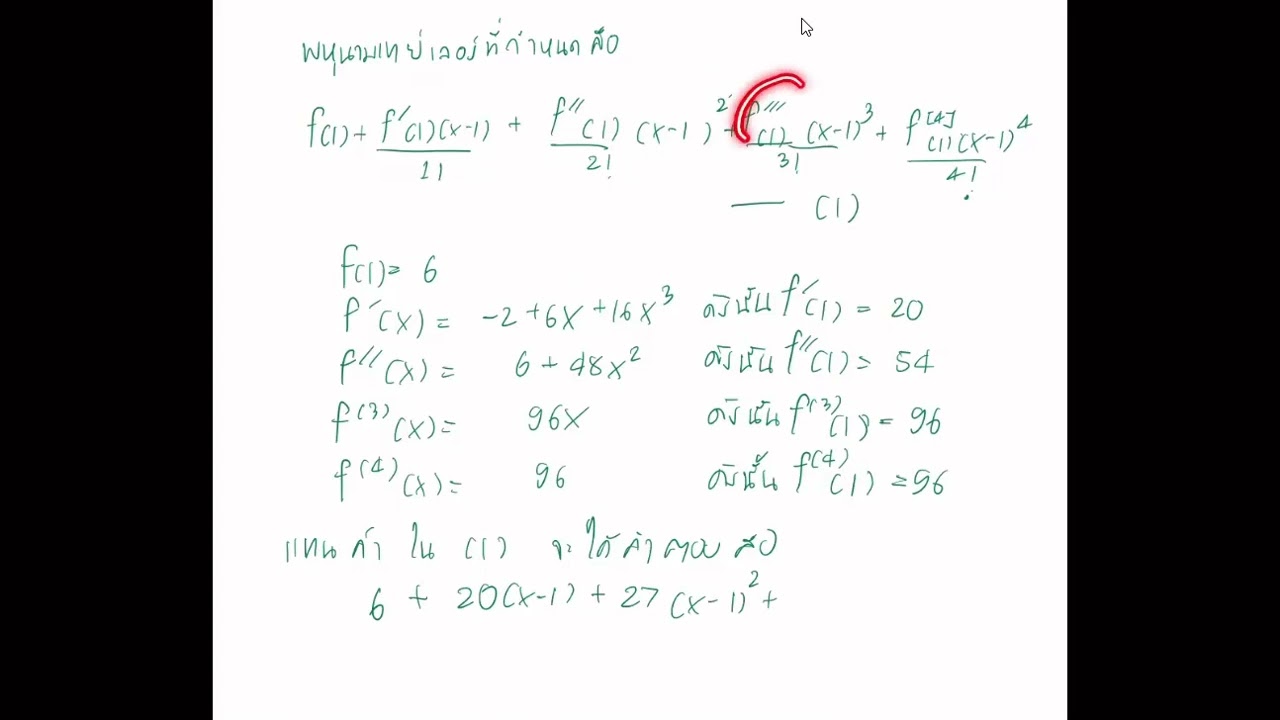 พหุนามเทย์เลอร์ที่กำหนด คือ
f(1) + f′(1)(x-1)/1! + f″(1)/2! (x-1)² + f‴(1)/3! (x-1)³ + f[4](1)(x-1)⁴/4!
— (1)
f(1) = 6
f′(x) = -2+6x+16x³ ดังนั้น f′(1) = 20
f″(x) = 6 + 48x² ดังนั้น f″(1) = 54
f(3)(x) = 96x ดังนั้น f(3)(1) = 96
f(4)(x) = 96 ดังนั้น f(4)(1) = 96
แทนค่า ใน (1) จะได้คำตอบ คือ
6 + 20(x-1) + 27(x-1)² +